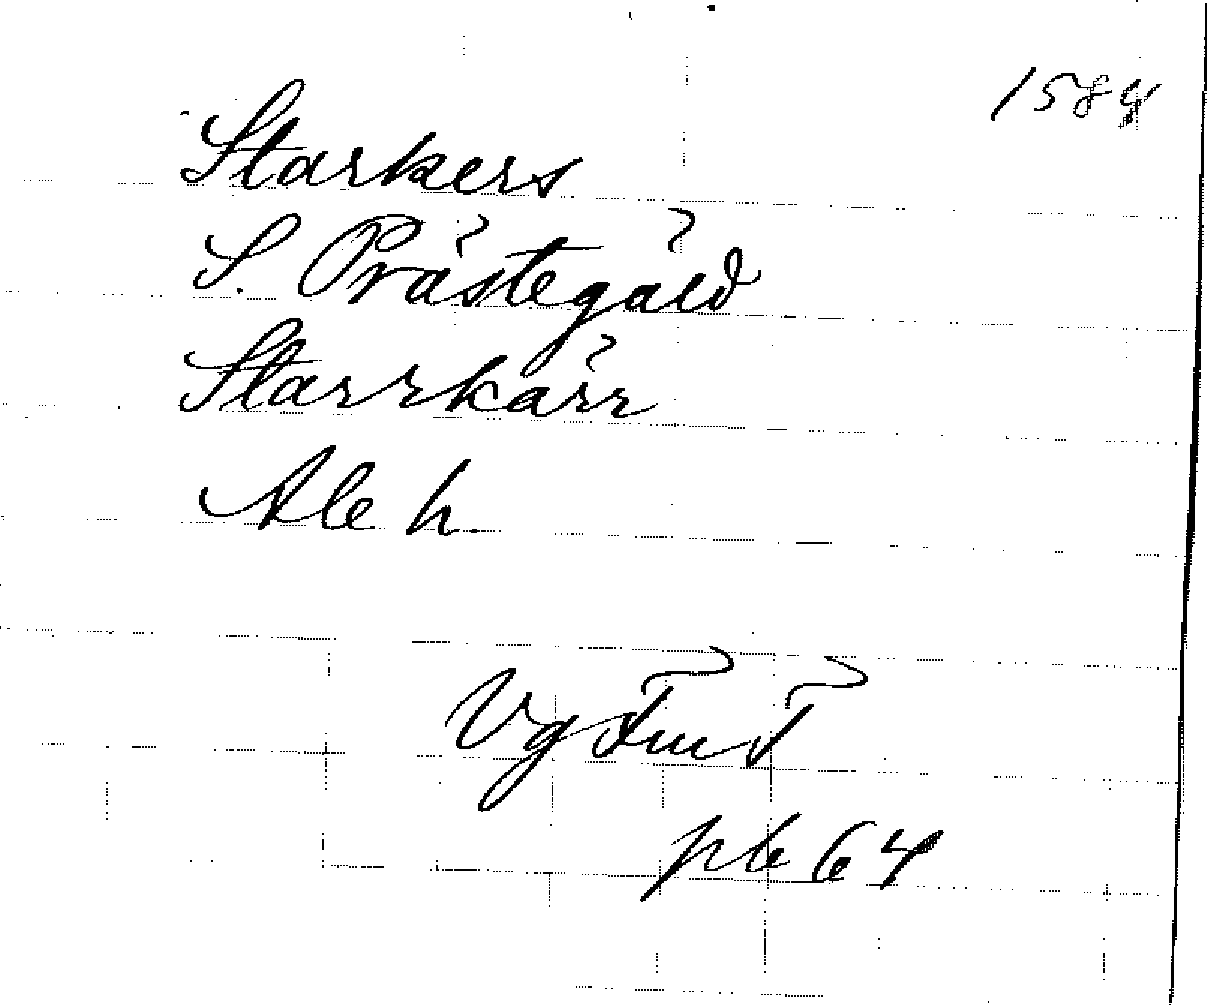 1584
Starkers
S. Prästegård
Starrkärr
Ale h.
Vg FmT
pb 64